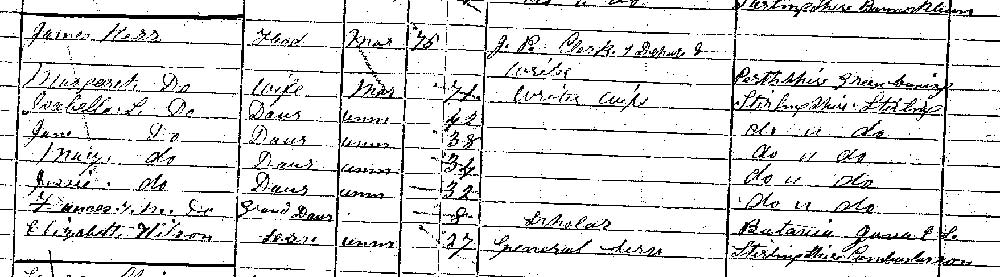 Stirlingshire Bannockburn
James Kerr Head Mar 75 J. P. Clerk &
Writer
Margaret Do Wife Mar 71 Writer wife Perthshire Greenloaning
Isabella L. Do Daur unm 42 Stirlingshire Stirling
Jane Do Daur unm 38 do " do
Mary do Daur unm 34 do " do
Jessie do Daur unm 32 do " do
Frances J. M. Do Grand Daur 8 Scholar do " do
Elizabeth Wilson Serv unm 27 General Serv Batavia Java E. I.
Stirlingshire Cambusbarron